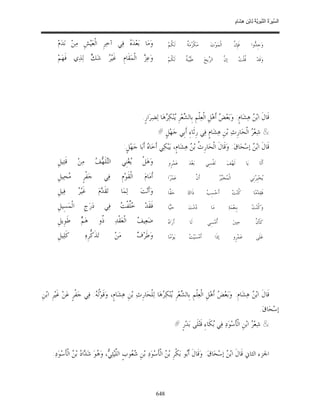 السِّيرَةُ النَّبَوِيَّةُ لِابْنِ هِشَامٍ
وَجِدُّوا فَإِنَّ الْمَوْتَ مَكْرُمَةٌ لَكُمْ وَمَا بَعْدَهُ فِي آخِرِ الْعَيْشِ مِنْ نَدَمْ
وَقَدْ قُلْتُ إِنَّ الرِّيحَ طَيِّبَةٌ لَكُمْ وَعِزَّ الْمَقَامِ غَيْرُ شَكٍّ لِذِي فَهَمْ
قَالَ ابْنُ هِشَامٍ: وَبَعْضُ أَهْلِ الْعِلْمِ بِالشِّعْرِ يُنْكِرُهَا لِضِرَارٍ.
& شِعْرُ الْحَارِثِ بْنِ هِشَامٍ فِي رِثَاءِ أَبِي جَهْلٍ #
قَالَ ابْنُ إِسْحَاقَ: وَقَالَ الْحَارِثُ بْنُ هِشَامٍ، يَبْكِي أَخَاهُ أَبَا جَهْلٍ:
أَلَا يَا لَهْفَ نَفْسِي بَعْدَ عَمْرٍو وَهَلْ يُغْنِي التَّلَهُّفُ مِنْ قَتِيلِ
يُخْبِرُنِي الْمُخَبِّرُ أَنَّ عَمْرًا أَمَامَ الْقَوْمِ فِي جَفْرٍ مُحِيلِ
فَقِدْمًا كُنْتُ أَحْسَبُ ذَاكَ حَقًّا وَأَنْتَ لِمَا تَقَدَّمَ غَيْرُ فِيلِ
وَكُنْتُ بِنِعْمَةٍ مَا دُمْتَ حَيًّا فَقَدْ خُلِّفْتُ فِي دَرَجِ الْمَسِيلِ
كَأَنِّي حِينَ أُمْسِي لَا أَرَاهُ ضَعِيفُ الْعَقْدِ ذُو هَمٍّ طَوِيلِ
عَلَى عَمْرٍو إِذَا أَمْسَيْتُ يَوْمًا وَطَرْفٌ مَنْ تَذَكُّرِهِ كَلِيلِ
قَالَ ابْنُ هِشَامٍ: وَبَعْضُ أَهْلِ الْعِلْمِ بِالشِّعْرِ يُنْكِرُهَا لِلْحَارِثِ بْنِ هِشَامٍ، وَقَوْلُهُ: فِي جَفْرٍ عَنْ غَيْرِ ابْنِ
إِسْحَاقَ.
& شِعْرُ ابْنِ الْأَسْوَدِ فِي بُكَاءِ قَتْلَى بَدْرٍ #
الجزء الثاني قَالَ ابْنُ إِسْحَاقَ: وَقَالَ أَبُو بَكْرِ بْنُ الْأَسْوَدِ بْنِ شُعُوبٍ اللَّيْثِيُّ، وَهُوَ شَدَّادُ بْنُ الْأَسْوَدِ:
648